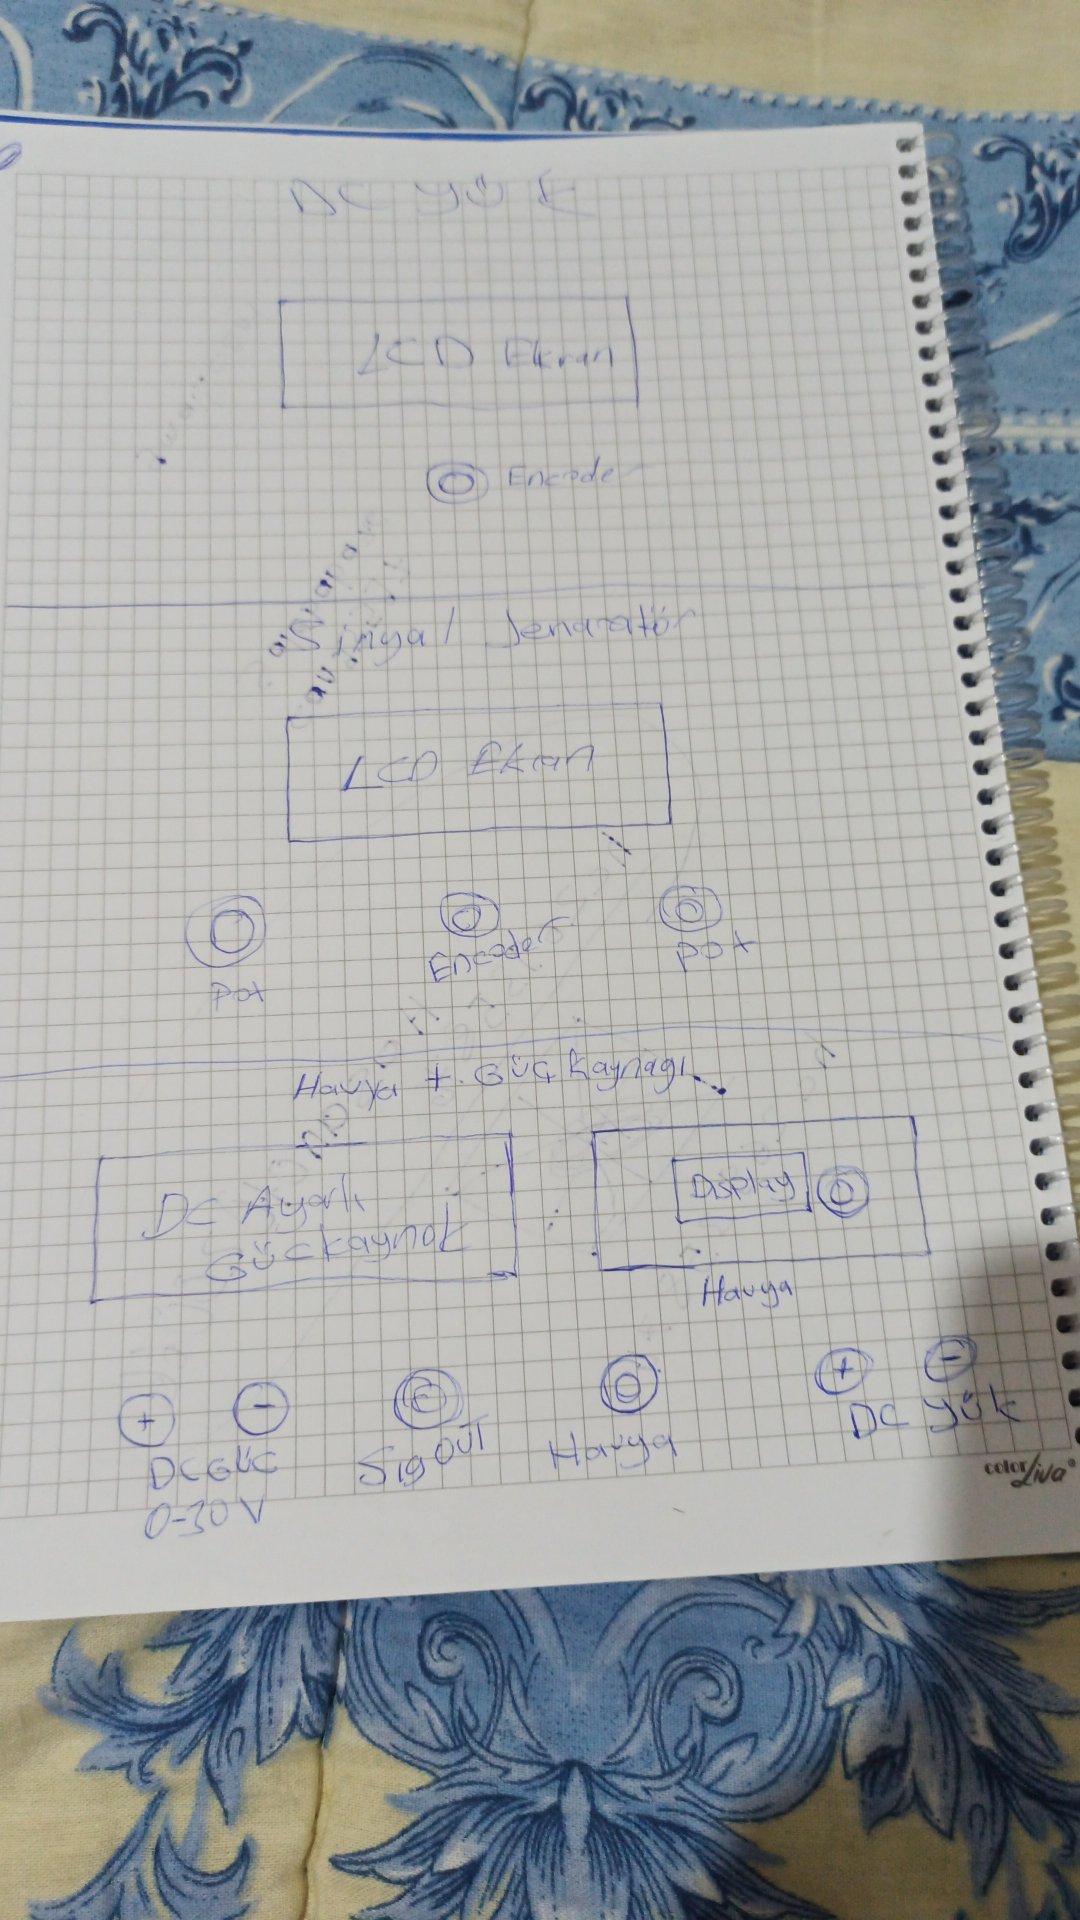 DC YÜK
LCD Ekran
Encoder
Sinyal Jenaratör
LCD Ekran
Pot
Encoder
Pot
Havya + Güç Kaynağı
DC Ayarlı
Güç kaynak
Display
Havya
+ -
DC GÜC
0-30V
Sig OUT
Havya
+ -
DC Yük
color Liva®